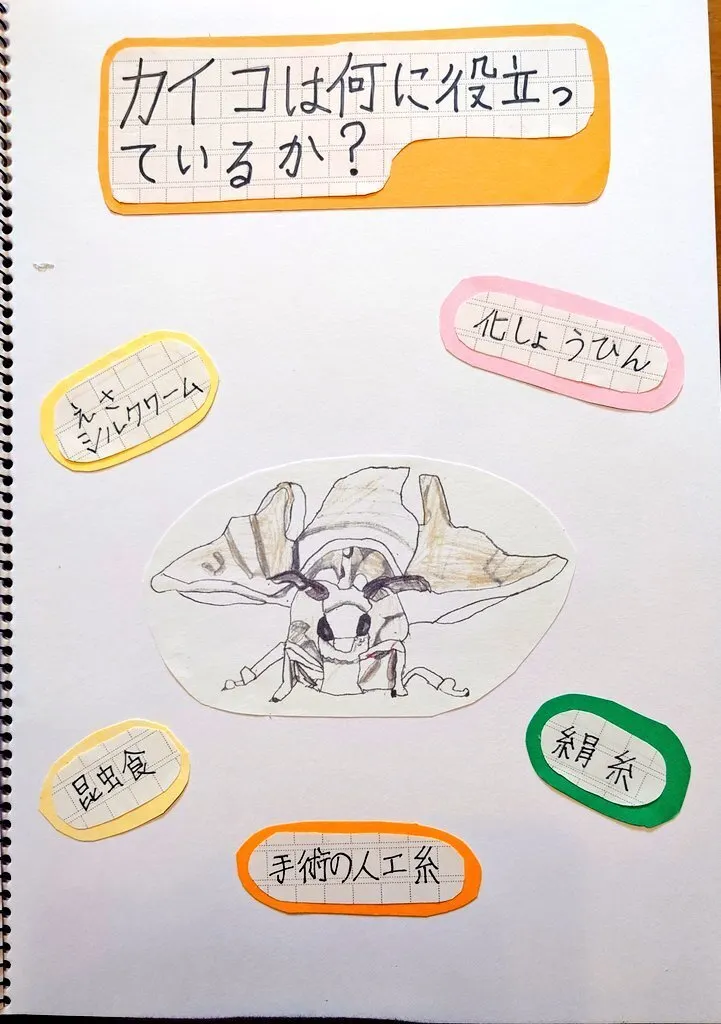 カイコは何に役立っ
ているか?
化しょうひん
えさ
シルクワーム
昆虫食
絹糸
手術の人工糸